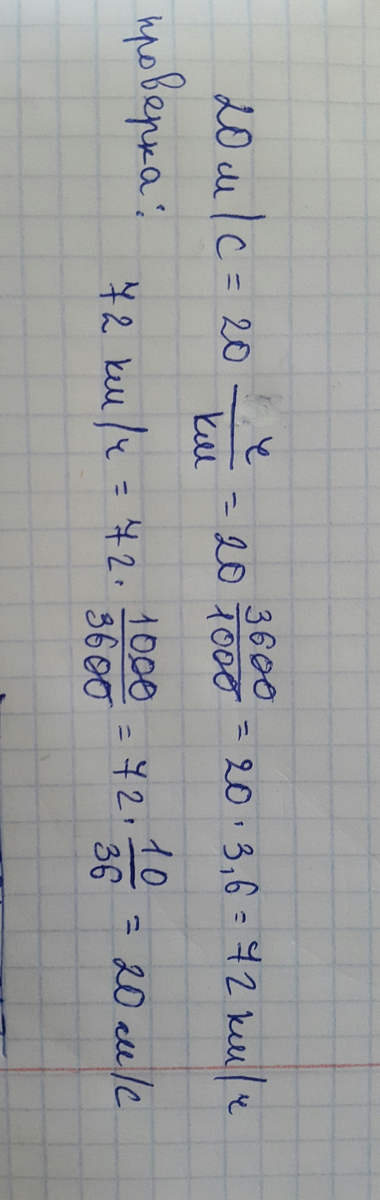 20 м/с = 20 ч/км = 20 3600/1000 = 20 · 3,6 = 72 км/ч
проверка: 72 км/ч = 72 · 1000/3600 = 72 · 10/36 = 20 м/с